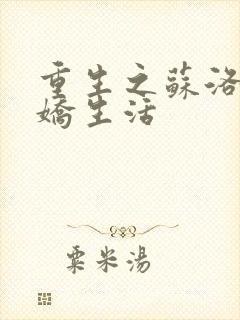 重生之蘇洛
嬌生活
粟米湯